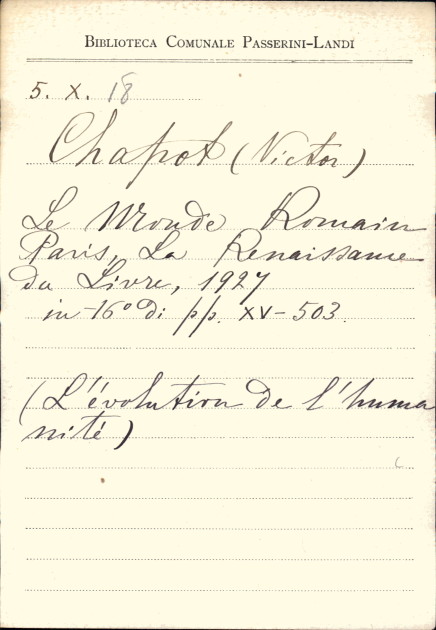 BIBLIOTECA COMUNALE PASSERINI-LANDI
5. X. 18
Chapot (Victor)
Le Monde Romain
Paris, La Renaissance
du Livre, 1927
in-16° di pp. XV-503.
(L'évolution de l'huma
nité)